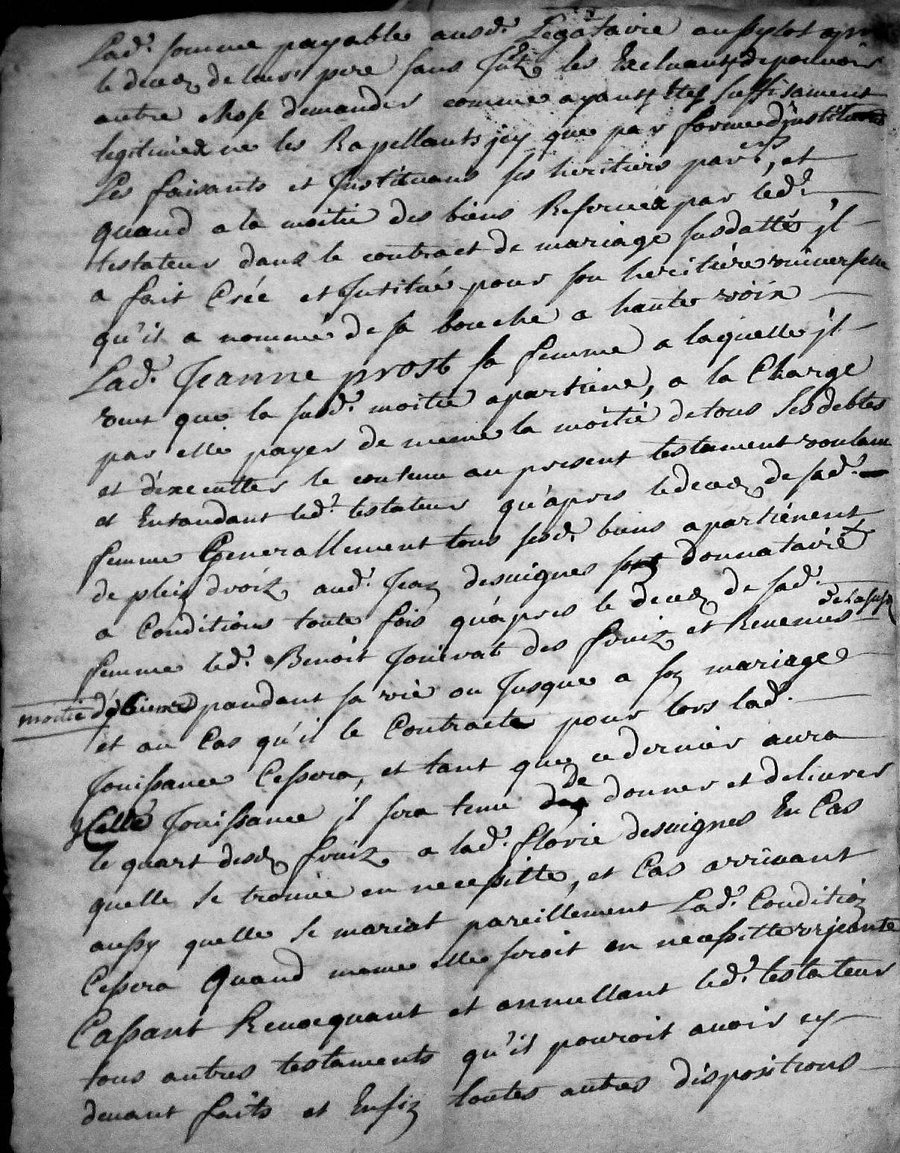 Lad.^e somme payable ausd.^s Legataire aussytot apres
le deced de leurs. pere sans les Excluants de pouvoir
autre chose demander comme ayants ettes suffisament
legitimes ne les Rapellants jcy que par forme d'institution
Les faisants et Instituans ses heritiers par.^ers, et
quand a la moitié des biens Reservée par led.^t
testateur dans le contract de mariage susdatté, jl
a fait Crée et Jnstitué pour son heritiére universelle
qu'il a nommé de sa bouche a haute voix
Lad.^e Jeanne prost sa femme a laquelle jl
veut que la susd.^e moitié apartiene, a la Charge
par elle payer de meme la moitié de tous ses debtes
et d'éxecutter le contenu au present testament voulant
et Entandant led.^t testateur qu'aprés le deced de sad.^e
femme Generallement tous sesd.^s biens apartiénent
de plein droit aud.^t Jean desvignes donnataire
a Conditions toute fois qu'aprés le deced de sad.^e
femme led.^t Benoit Jouirat des fruiz et Revenus de la susd.
moitié d'yceux pandant sa vie ou Jusque a son mariage
et au Cas qu'il le Contracte pour lors lad.^e
Jouissance Cessera, et tant que ce dernier aura
ycelle Jouissance jl sera tenu de donner et delivrer
le quart desd. fruiz a lad.^e florie desvignes En Cas
quelle se trouve en necessitte, et Cas arrivant
aussy quelle se mariat pareillement Lad.^e Condition
Cessera Quand meme elle seroit en necessitte urjeante
Cassant Revocquant et annullant led.^t testateur
tous autres testaments qu'il pouroit avoir cy
devant faits et Enfin toutes autres dispositions